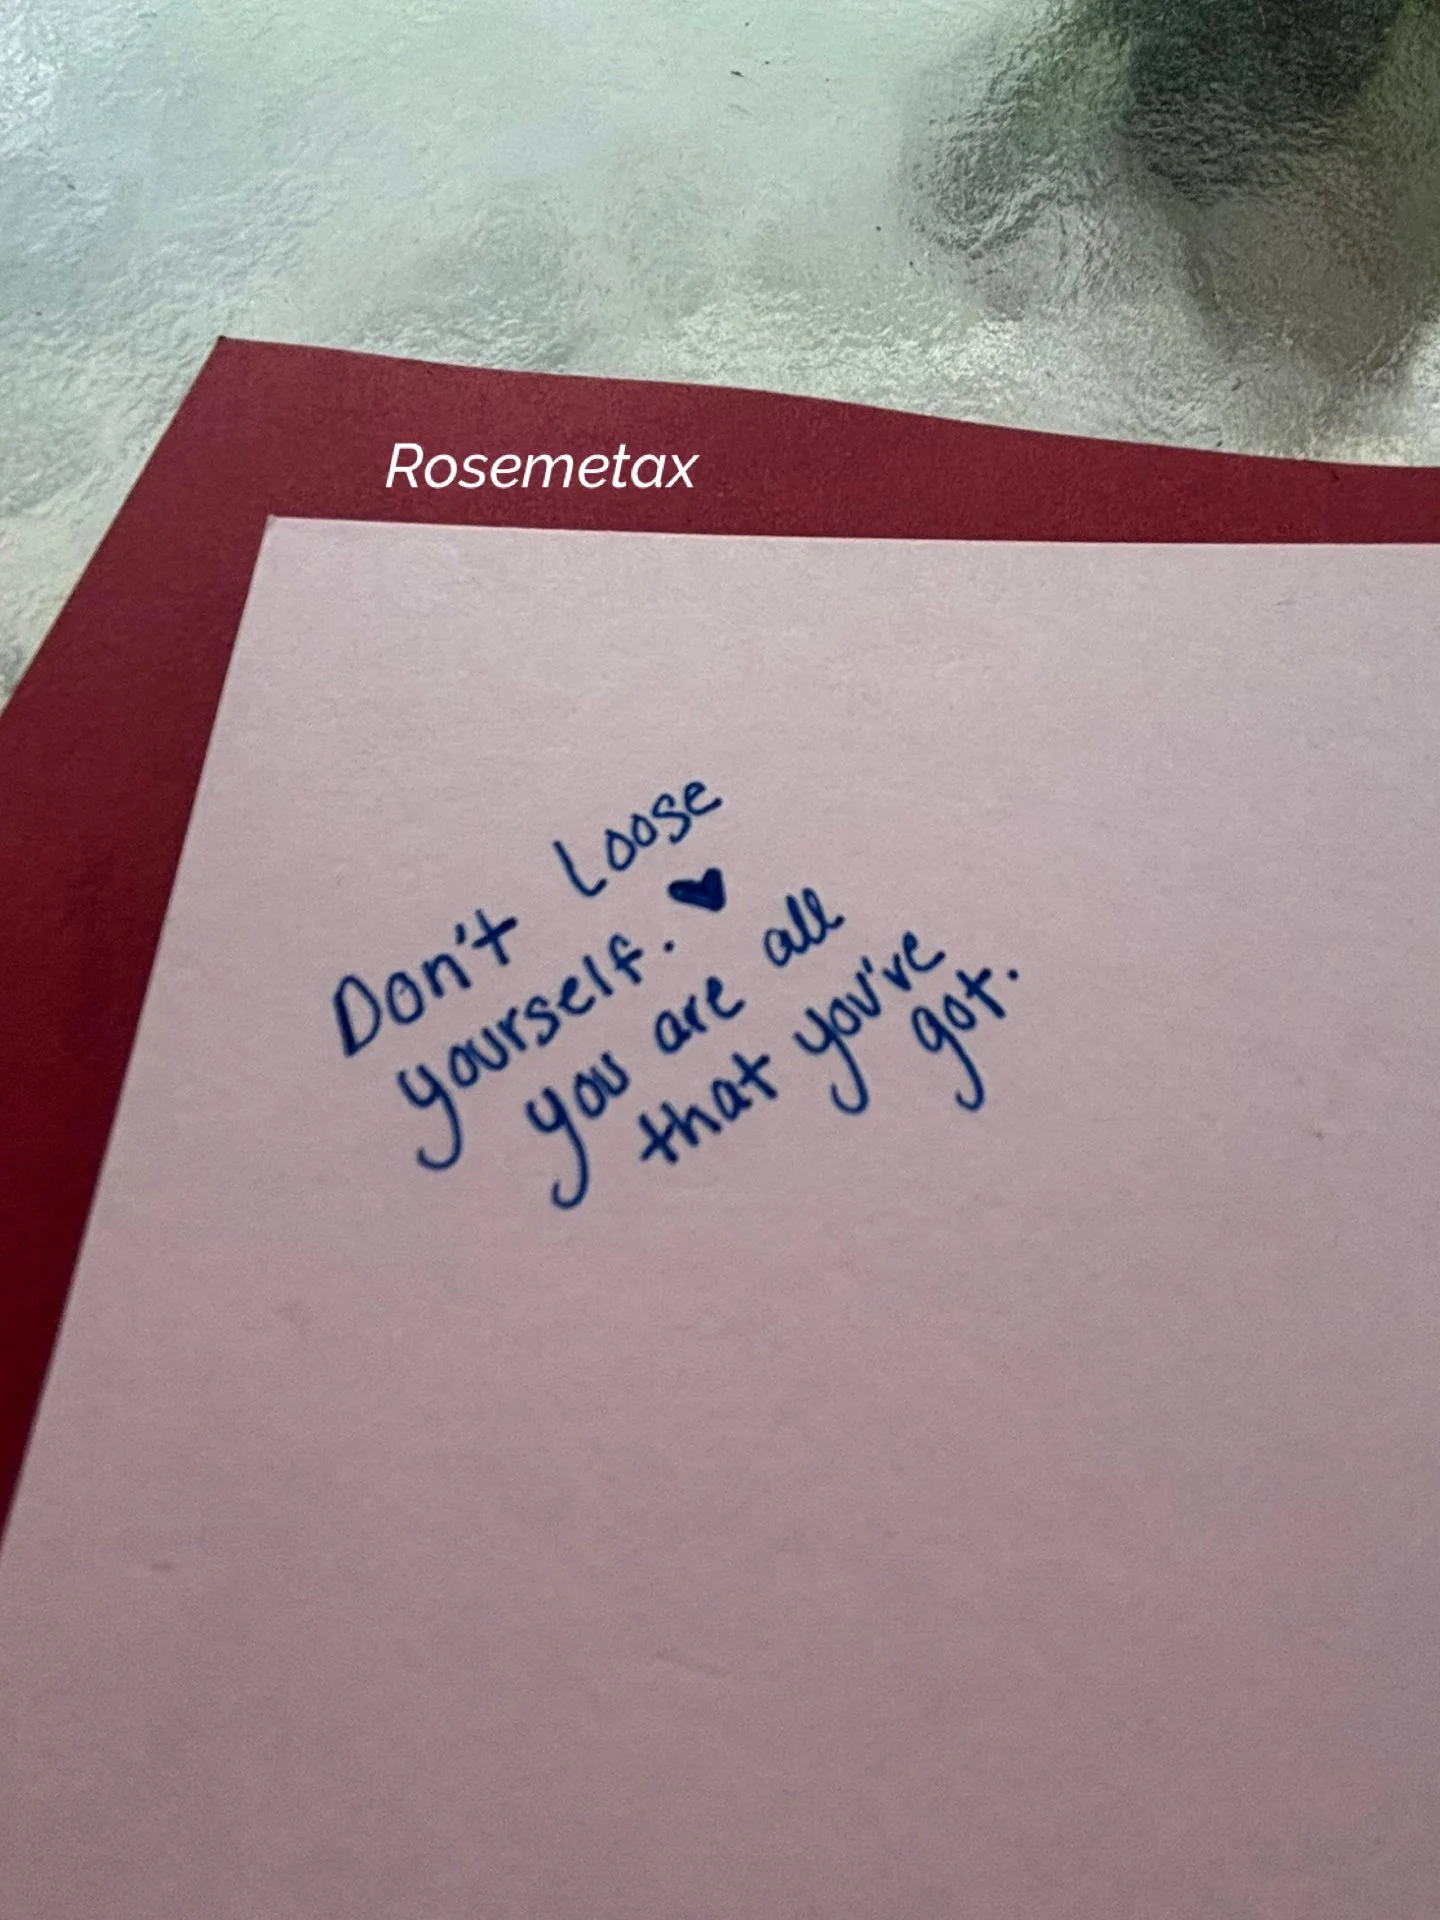 Rosemetax
Don't Loose
yourself. ♥
you are all
that you've
got.